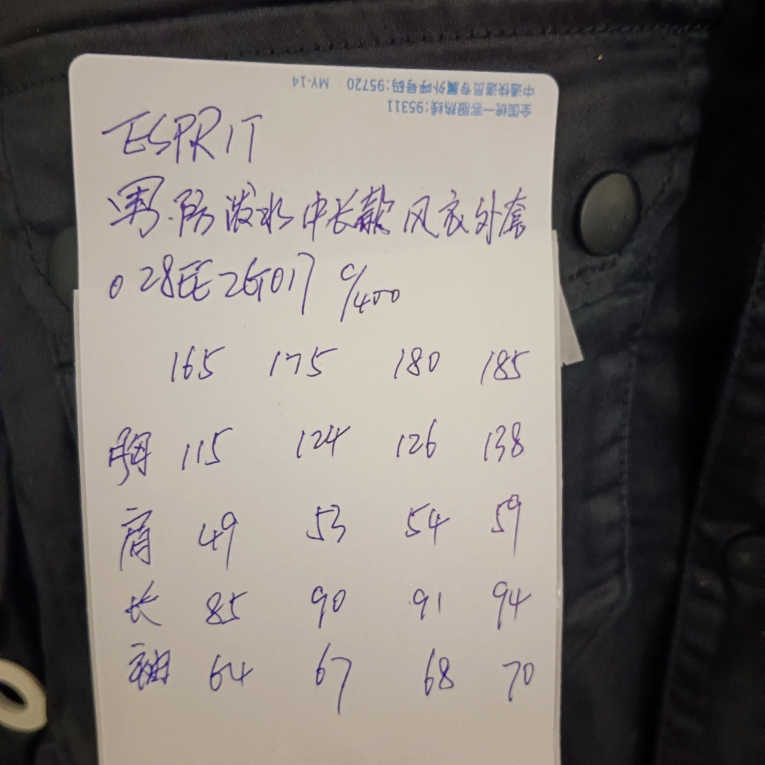 中通快递员专属外呼号码:95720 MY-14
全国统一客服热线:95311
ESPRIT
男.防泼水中长款风衣外套
028EE2G017 C/400
165 175 180 185
胸 115 124 126 138
肩 49 53 54 59
长 85 90 91 94
袖 64 67 68 70